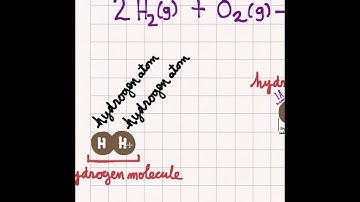 2 H₂(g) + O₂(g)
hydrogen atom
hydrogen atom
H H+
hydrogen molecule